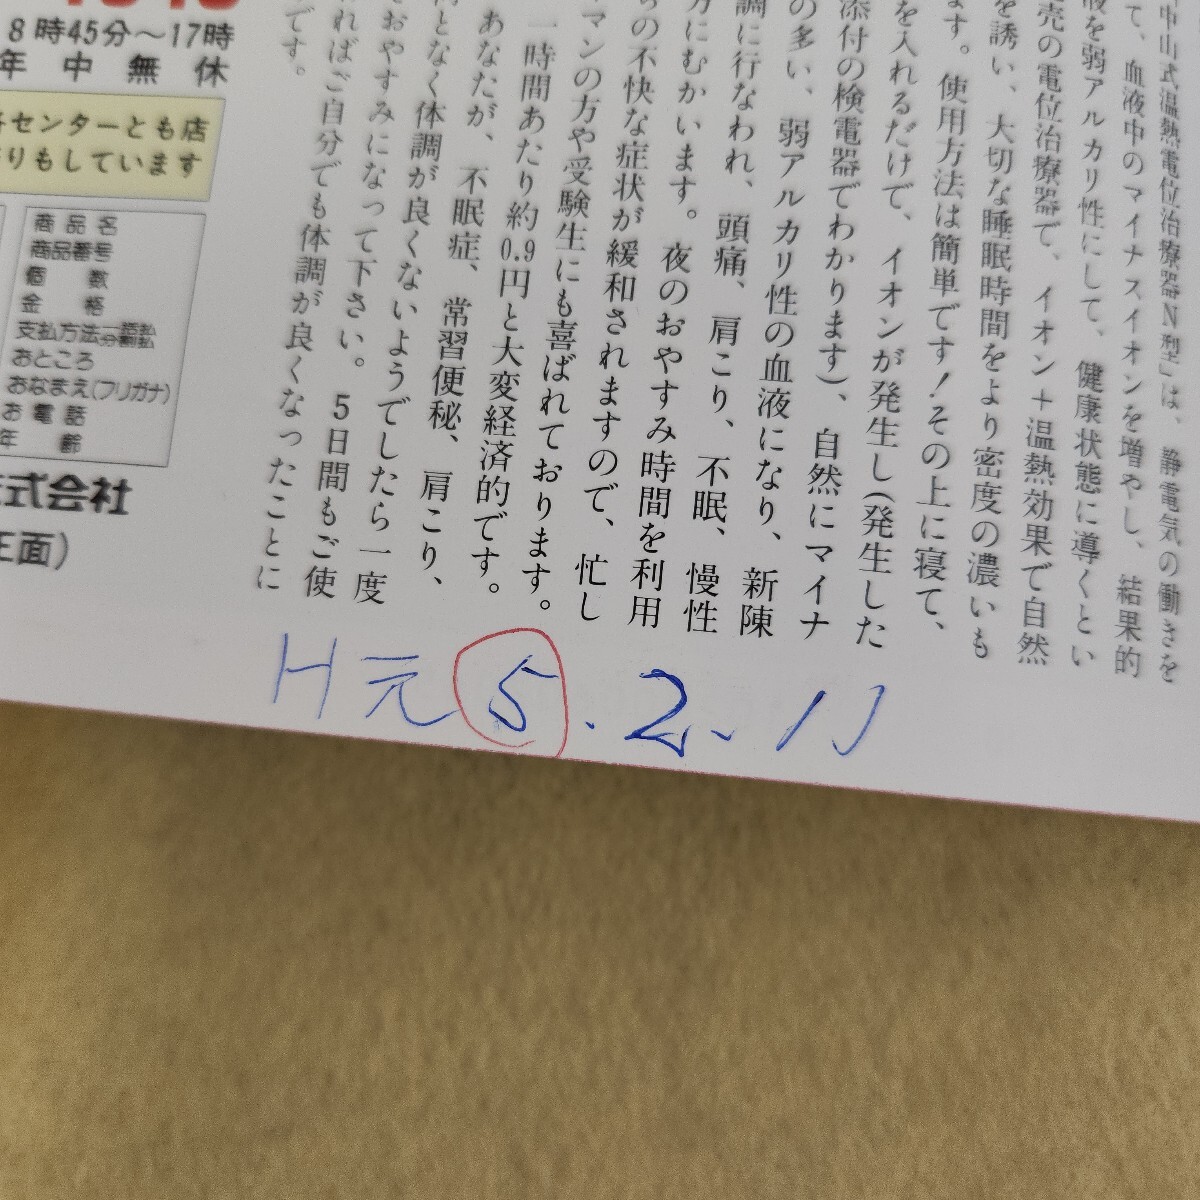 中山式温熱電位治療器N型」は、静電気の働きを
て、血液中のマイナスイオンを増やし、結果的
液を弱アルカリ性にして、健康状態に導くとい
売の電位治療器で、イオン＋温熱効果で自然
を誘い、大切な睡眠時間をより密度の濃いも
ます。使用方法は簡単です！その上に寝て、
を入れるだけで、イオンが発生し(発生した
添付の検電器でわかります)、自然にマイナ
の多い、弱アルカリ性の血液になり、新陳
調に行なわれ、頭痛、肩こり、不眠、慢性
方にむかいます。夜のおやすみ時間を利用
らの不快な症状が緩和されますので、忙し
マンの方や受験生にも喜ばれております。
一時間あたり約0.9円と大変経済的です。
あなたが、不眠症、常習便秘、肩こり、
となく体調が良くないようでしたら一度
おやすみになって下さい。5日間もご使
ればご自分でも体調が良くなったことに
です。
8時45分〜17時
年中無休
センターとも店
りもしています
商品名
商品番号
個数
金格
支払方法一括払分割払
おところ
おなまえ(フリガナ)
お電話
年齢
式会社
正面)
H元5.2.11